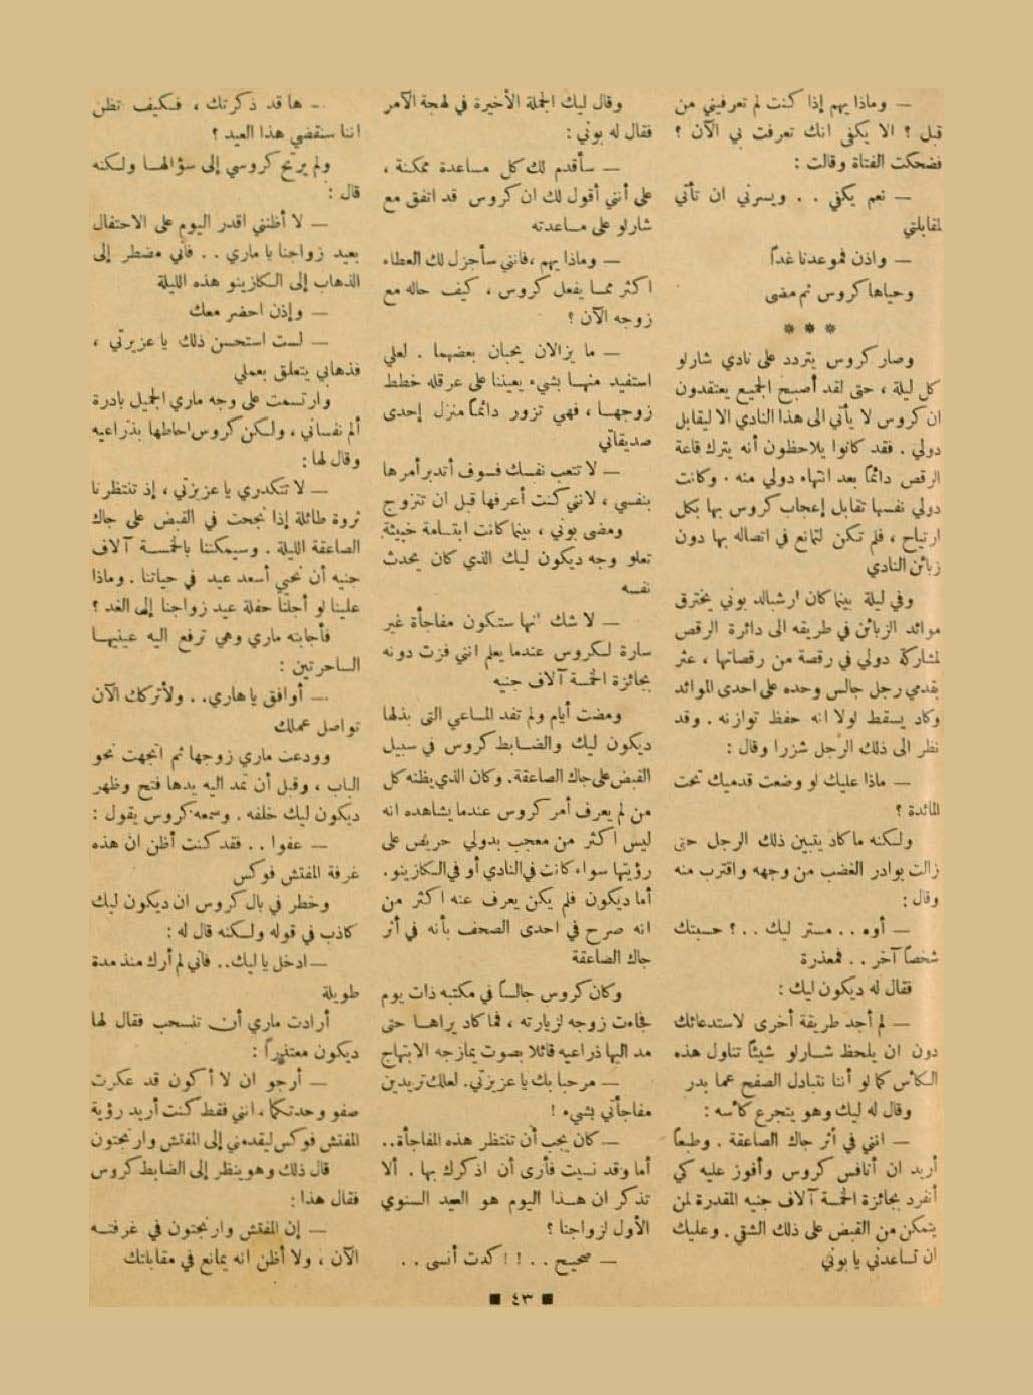 — وماذا يهم إذا كنت لم تعرفيني من
قبل ؟ الا يكفى انك تعرفت بي الآن ؟
فضحكت الفتاة وقالت :
— نعم يكفي . . ويسرني ان تأتى
لمقابلتي
— واذن فموعدنا غداً
وحياها كروس ثم مضى
* * *
وصار كروس يتردد على نادي شارلو
كل ليلة ، حتى لقد أصبح الجميع يعتقدون
ان كروس لا يأتي الى هذا النادي الا ليقابل
دولي . فقد كانوا يلاحظون أنه يترك قاعة
الرقص دائماً بعد انتهاء دولي منه . وكانت
دولي نفسها تقابل إعجاب كروس بها بكل
ارتياح ، فلم تكن لتمانع في اتصاله بها دون
زبائن النادي
وفي ليلة بينما كان ارشبالد بوني يخترق
موائد الزبائن في طريقه الى دائرة الرقص
لمشاركة دولي في رقصة من رقصاتها ، عثر
بقدمي رجل جالس وحده على احدى الموائد
وكاد يسقط لولا انه حفظ توازنه . وقد
نظر الى ذلك الرجل شزرا وقال :
— ماذا عليك لو وضعت قدميك تحت
المائدة ؟
ولكنه ما كاد يتبين ذلك الرجل حتى
زالت بوادر الغضب من وجهه واقترب منه
وقال :
— أوه . . مستر ليك . . ؟ حسبتك
شخصاً آخر . . فمعذرة
فقال له ديكون ليك :
— لم أجد طريقة أخرى لاستدعائك
دون ان يلحظ شارلو شيئاً تناول هذه
الكأس كما لو أننا نتبادل الصفح عما بدر
وقال له ليك وهو يتجرع كأسه :
— انني في أثر جاك الصاعقة . وطبعاً
أريد ان أنافس كروس وأفوز عليه كي
أنفرد بجائزة الخمسة آلاف جنيه المقدرة لمن
يتمكن من القبض على ذلك الشقي . وعليك
ان تساعدني يا بوني
وقال ليك الجملة الأخيرة في لهجة الآمر
فقال له بوني :
— سأقدم لك كل مساعدة ممكنة ،
على أنني أقول لك ان كروس قد اتفق مع
شارلو على مساعدته
— وماذا يهم ، فانني سأجزل لك العطاء
اكثر مما يفعل كروس ، كيف حاله مع
زوجه الآن ؟
— ما يزالان يحبان بعضهما . لعلي
استفيد منها بشيء يعيننا على عرقلة خطط
زوجها ، فهي تزور دائماً منزل إحدى
صديقاتي
— لا تتعب نفسك فسوف أتدبر أمرها
بنفسي ، لانني كنت أعرفها قبل ان تتزوج
ومضى بوني ، بينما كانت ابتسامة خبيثة
تعلو وجه ديكون ليك الذي كان يحدث
نفسه
— لا شك انها ستكون مفاجأة غير
سارة لكروس عندما يعلم انني فزت دونه
بجائزة الخمسة آلاف جنيه
ومضت أيام ولم تفد المساعي التى بذلها
ديكون ليك والضابط كروس في سبيل
القبض على جاك الصاعقة . وكان الذي يظنه كل
من لم يعرف أمر كروس عندما يشاهده انه
ليس اكثر من معجب بدولي حريص على
رؤيتها سواء كانت في النادي أو في الكازينو .
أما ديكون فلم يكن يعرف عنه اكثر من
انه صرح في احدى الصحف بأنه في أثر
جاك الصاعقة
وكان كروس جالساً في مكتبه ذات يوم
فجاءت زوجه لزيارته ، فما كاد يراها حتى
مد اليها ذراعيه قائلا بصوت يمازجه الابتهاج
— مرحبا بك يا عزيزتي . لعلك تريدين
مفاجأتي بشيء !
— كان يجب أن تنتظر هذه المفاجأة . .
أما وقد نسيت فأرى أن اذكرك بها . ألا
تذكر ان هذا اليوم هو العيد السنوي
الأول لزواجنا ؟
— صحيح . . ! ! كدت أنسى . .
— ها قد ذكرتك ، فكيف تظن
اننا سنقضي هذا العيد ؟
ولم يرتح كروسي إلى سؤالها ولكنه
قال :
— لا أظنني اقدر اليوم على الاحتفال
بعيد زواجنا يا ماري . . فاني مضطر إلى
الذهاب إلى الكازينو هذه الليلة
— وإذن احضر معك
— لست استحسن ذلك يا عزيزتي ،
فذهابي يتعلق بعملي
وارتسمت على وجه ماري الجميل بادرة
ألم نفساني ، ولكن كروس احاطها بذراعيه
وقال لها :
— لا تتكدري يا عزيزتي ، إذ تنتظرنا
ثروة طائلة إذا نجحت في القبض على جاك
الصاعقة الليلة . وسيمكننا بالخمسة آلاف
جنيه أن نحيي أسعد عيد في حياتنا . وماذا
علينا لو أجلنا حفلة عيد زواجنا إلى الغد ؟
فأجابته ماري وهي ترفع اليه عينيها
الساحرتين :
— أوافق يا هاري . . ولأتركك الآن
تواصل عملك
وودعت ماري زوجها ثم اتجهت نحو
الباب ، وقبل أن تمد اليه يدها فتح وظهر
ديكون ليك خلفه . وسمعه كروس يقول :
— عفوا . . فقد كنت أظن ان هذه
غرفة المفتش فوكس
وخطر في بال كروس ان ديكون ليك
كاذب في قوله ولكنه قال له :
— ادخل يا ليك . . فاني لم أرك منذ مدة
طويلة
أرادت ماري أن تنسحب فقال لها
ديكون معتذراً :
— أرجو ان لا أكون قد عكرت
صفو وحدتكما ، انني فقط كنت أريد رؤية
المفتش فوكس ليقدمني إلى المفتش وارنجتون
قال ذلك وهو ينظر إلى الضابط كروس
فقال هذا :
— إن المفتش وارنجتون في غرفته
الآن ، ولا أظن انه يمانع في مقابلتك
■ ٤٣ ■